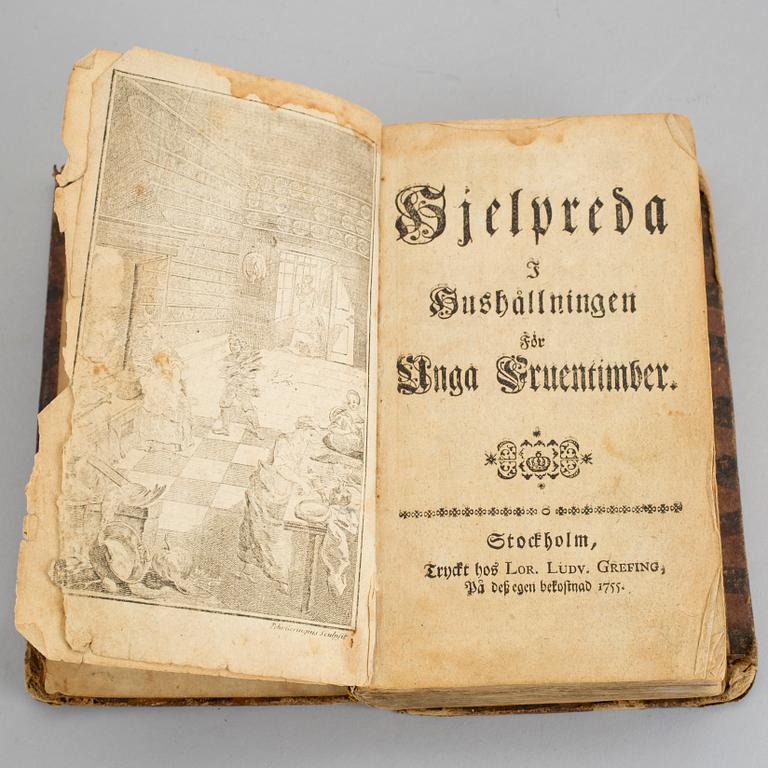 Hjelpreda
I
Hushållningen
För
Unga Fruentimber.
Stockholm,
Tryckt hos LOR. LUDV. GREFING,
På deß egen bekostnad 1755.
Sculpsit